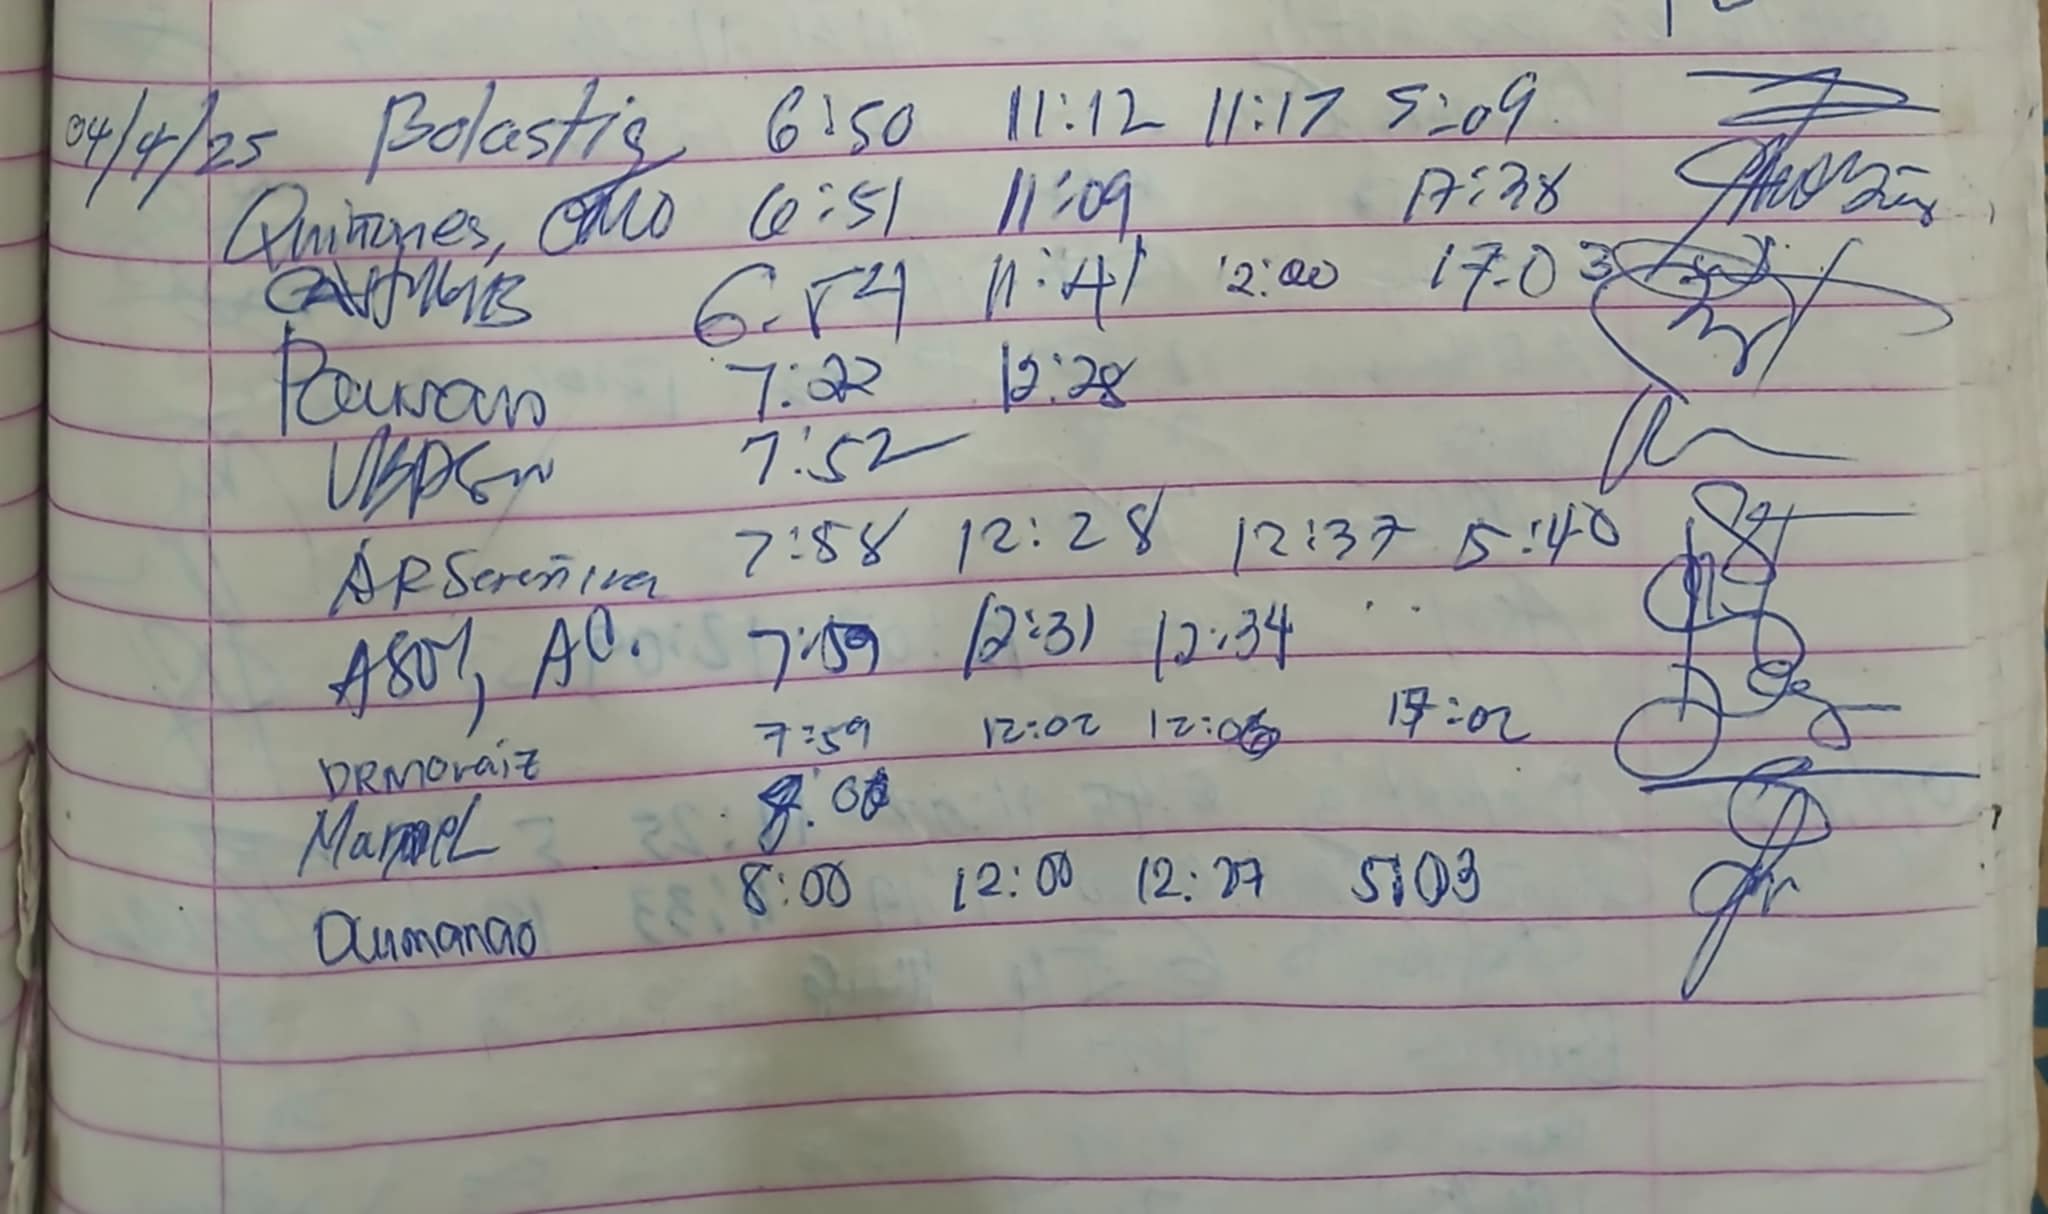 04/4/25 Bolastig 6:50 11:12 11:17 5:09
Quiñones, 6:51 11:09 17:38
6:54 11:41 12:00 17:03
7:22 12:28
7:52
AR Sereñina 7:58 12:28 12:37 5:40
ASOY, AC. 7:59 12:31 12:34
DRMoraiz 7:59 12:02 12:06 17:02
Manuel 8:00
Dumanao 8:00 12:00 12:27 5:03